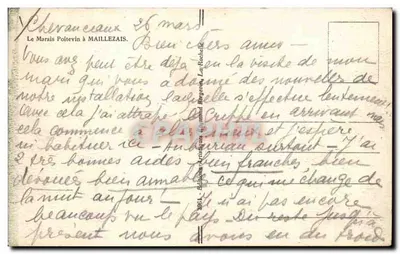 Chevanceaux 26 mars
Le Marais Poitevin à MAILLEZAIS.
Bien chers amis
Vous avez peut être déjà eu la visite de mon
mari qui vous a donné des nouvelles de
notre installation, laquelle s'effectue lentement
avec cela j'ai attrapé la grippe en arrivant mais
cela commence à aller mieux et j'espère
m'habituer ici - au bureau surtout - J'ai
2 très bonnes aides, bien franches, bien
dévouées, bien aimables - ce qui me change de
la nuit au jour! Je n'ai pas encore
beaucoup vu le pays - Du reste jusqu'à
présent nous avons eu du froid